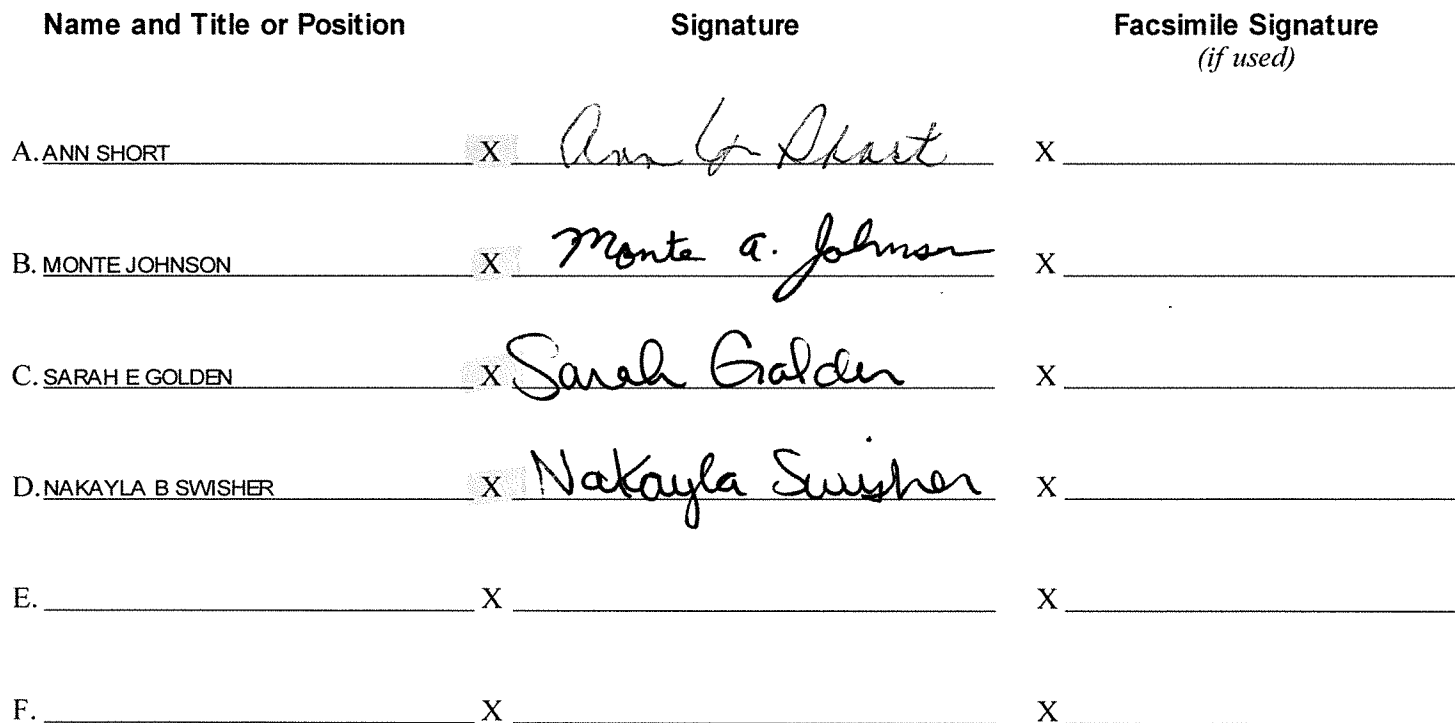 Name and Title or Position Signature Facsimile Signature
(if used)
A. ANN SHORT X Ann Short X
B. MONTE JOHNSON X Monte A. Johnson X
C. SARAH E GOLDEN X Sarah Golden X
D. NAKAYLA B SWISHER X Nakayla Swisher X
E. X X
F. X X